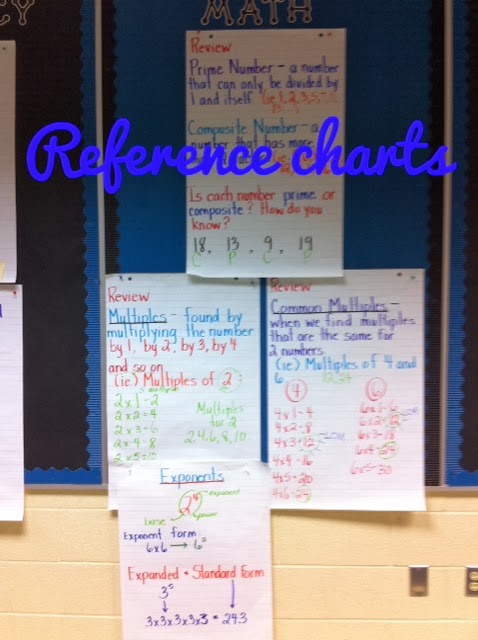 MATH
Reference charts
Review
Prime Number - a number
that can only be divided by
1 and itself.
Composite Number - a
number that has more
Is each number prime or
composite? How do you
know?
18, 13, 9, 19
C P C P
Review
Multiples - found by
multiplying the number
by 1, by 2, by 3, by 4
and so on
(ie) Multiples of 2
2x1=2
2x2=4
2x3=6
2x4=8
2x5=10
Multiples
for 2
2,4,6,8,10
Review
Common Multiples -
when we find multiples
that are the same for
2 numbers.
(ie) Multiples of 4 and
6 12,24
4
4x1=4
4x2=8
4x3=12
4x4=16
4x5=20
4x6=24
6
6x1=6
6x2=12
6x3=18
6x4=24
6x5=30
Exponents
2⁴ exponent
base power
Exponent form
6x6 →
Expanded + Standard Form
3⁵
3x3x3x3x3 = 243